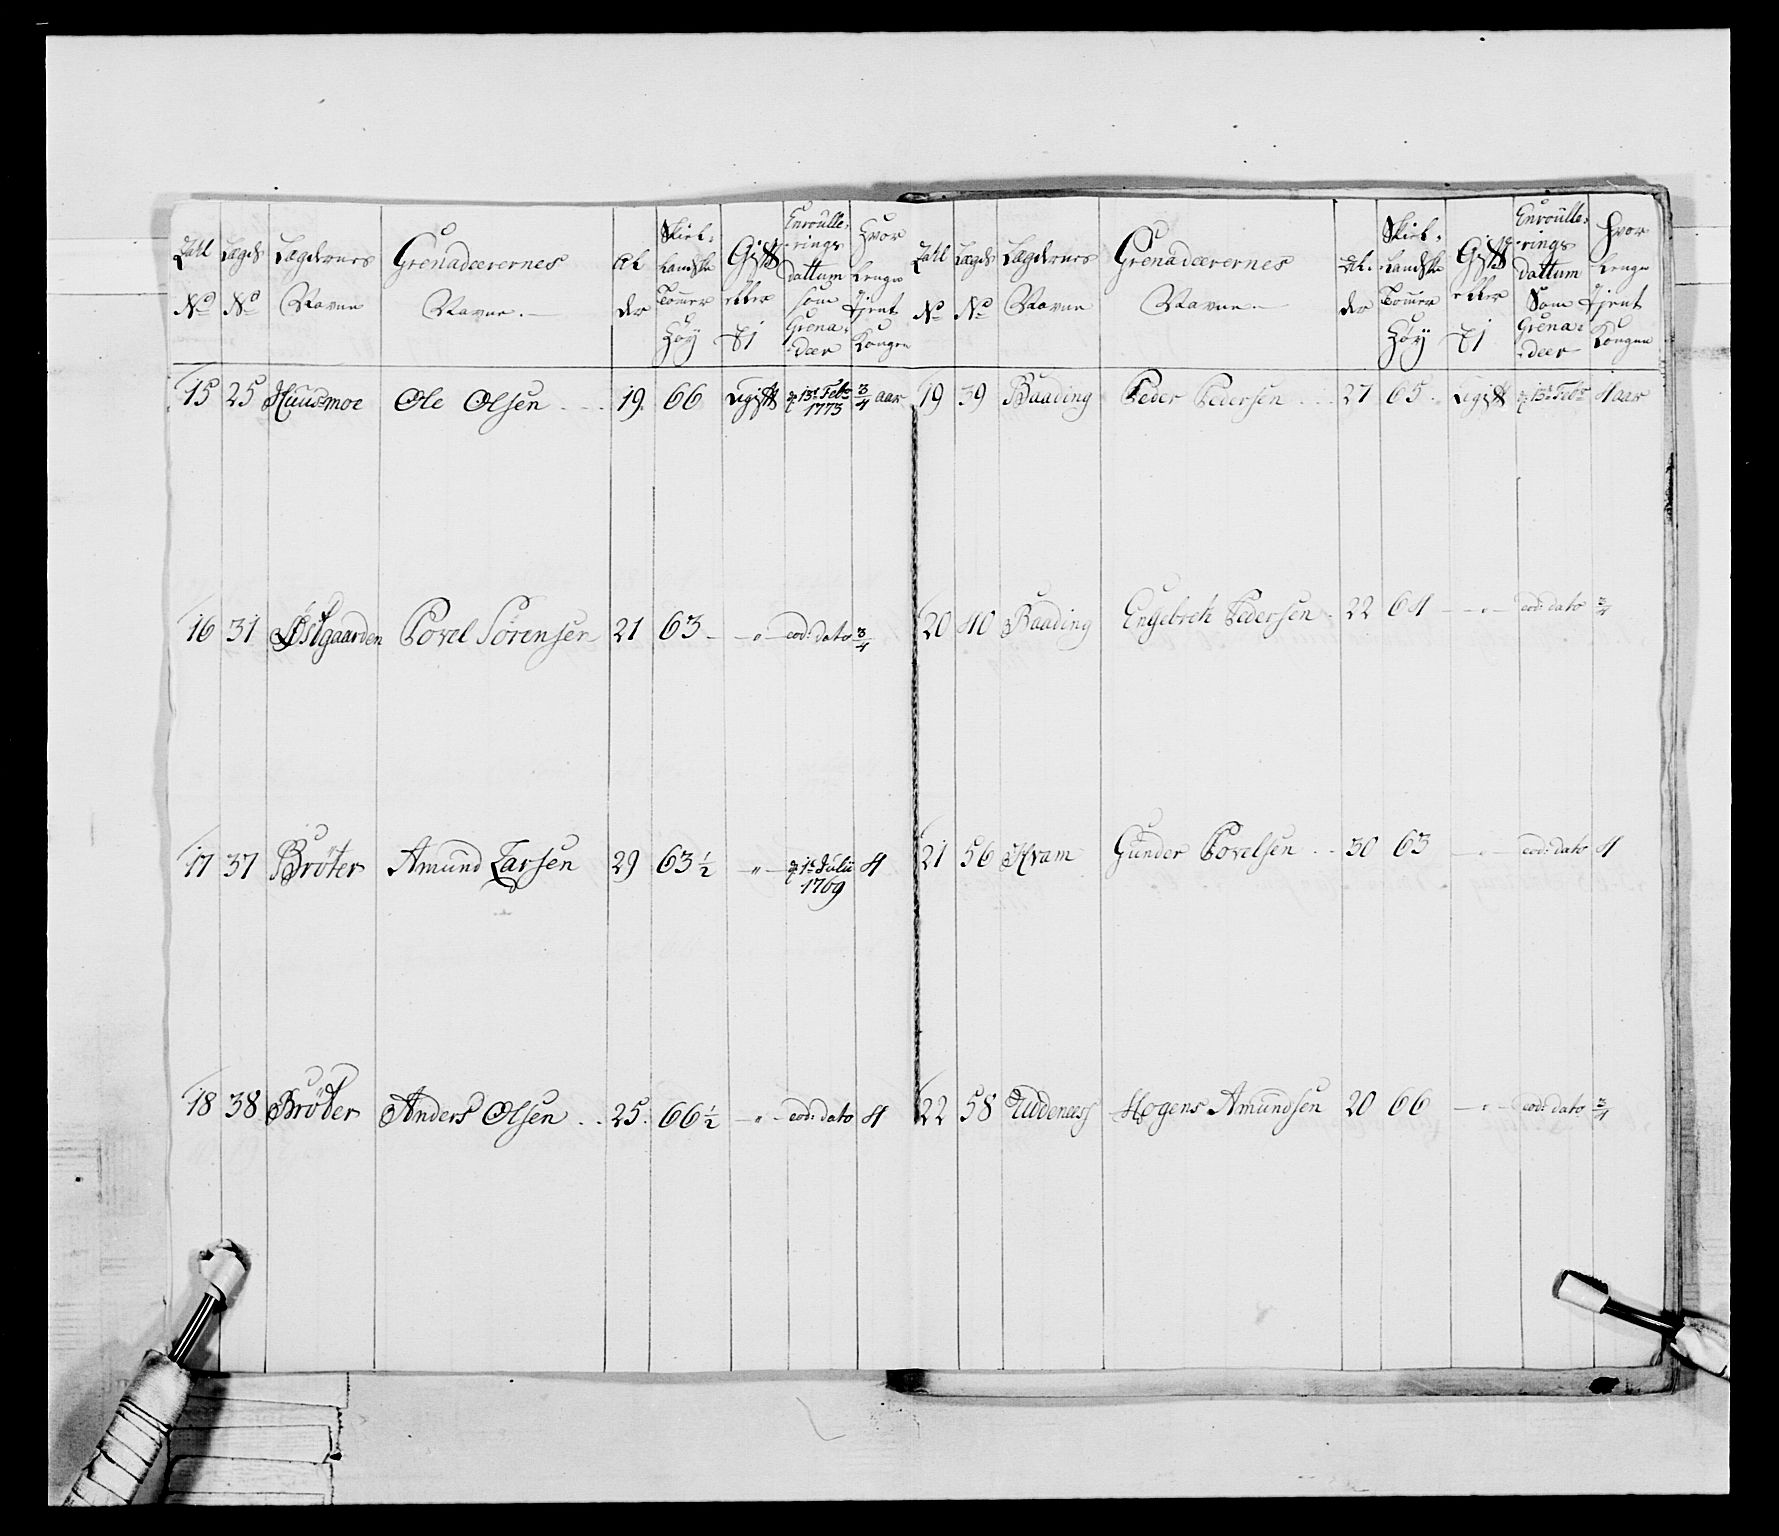 Tahl No
Lægds No
Lægdernes Navne
Grenadeerernes Navne.
Al der
Skiel: Landske Tomer Høy
Gift eller Ei
Enroulle: rings dattum som Grena: deer
Hvor Lenge tjent Kongen
15 25 Huusmoe Ole Olsen 19. 66 Ugift d 13de Febr 1773 3/4 aar
16 31 Østgaarden Povel Sørensen 21 63 - „ - eod: dato 3/4
17 37 Brøter Amund Larsen 29 63 1/2 - „ - d 1de Julii 1769 4
18 38 Brøter Anders Olsen 25. 66 1/2 - „ - eod: dato 4
Tahl No
Lægds No
Lægdernes Navne
Grenadeerernes Navne.
Al der
Skiel: Landske Tomer Høy
Gift eller Ei
Enroulle: rings dattum Som Grena: deer
Hvor Lenge tjent Kongen
19 39 Baading Peder Pedersen 27 65. Ugift d 13de Febr 4 aar
20 40 Baading Engebreth Pedersen 22 64 - „ - eod: dato 3/4
21 56 Kvam Gunder Povelsen 30 63 „ eod: dato 4
22 58 Uddenæss Mogens Amundsen 20 66 - „ - eod: dato 3/4